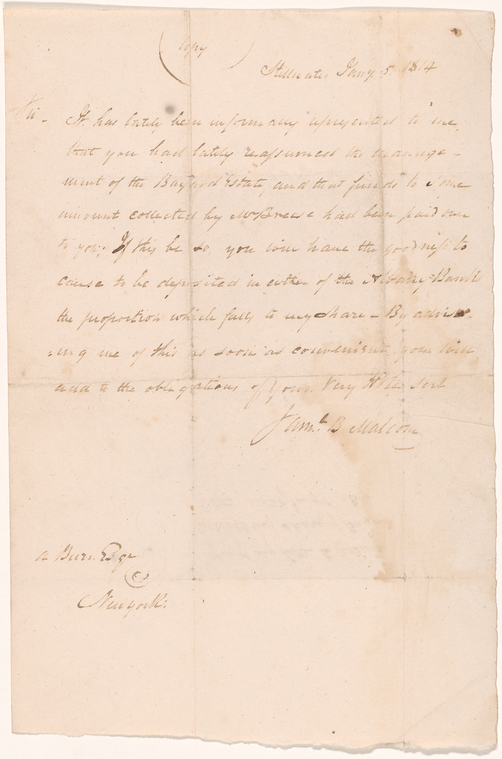 Copy
Stillwater Jany 5 1814
Sir - It has lately been informally represented to me
that you had lately reassumed the manage-
ment of the Bayard Estate and that funds to some
amount collected by Mr Breese had been paid over
to you: If this be so you will have the goodness to
cause to be deposited in either of the Albany Banks
the proportion which falls to my share - By advise-
ing me of this as soon as convenient, you will
add to the obligations of Your Very Hble Servt
Saml B Malcom
A Burr Esqr
Newyork: